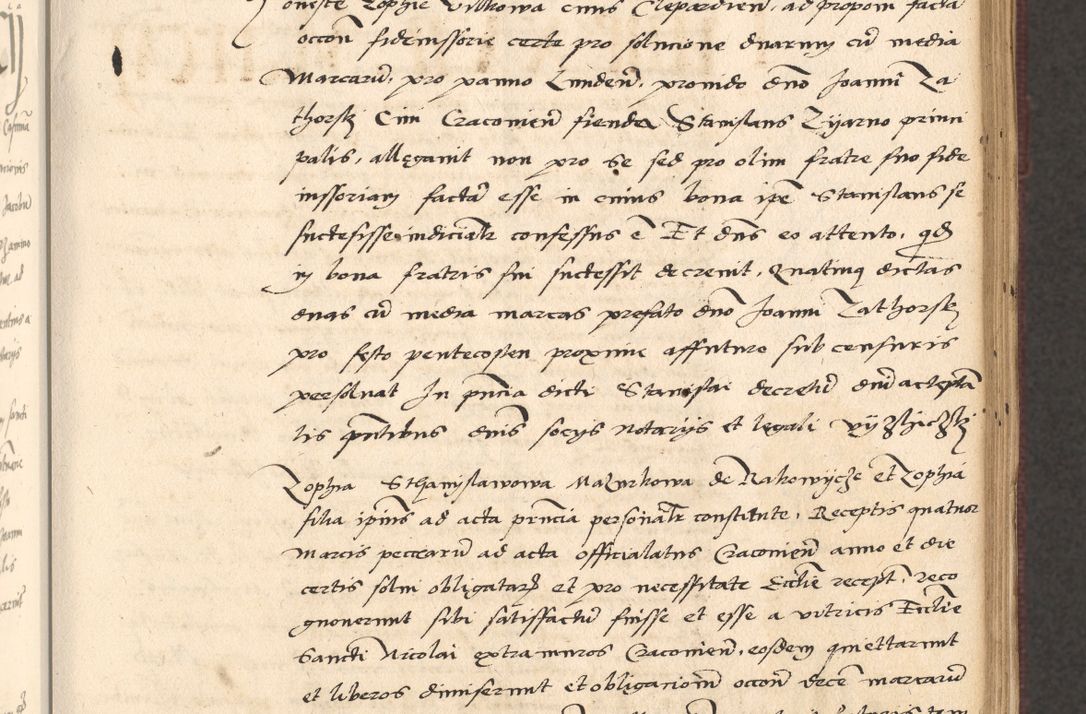 oneste Zophie Vilkowa civis Clepardien̄, ad proposi facta
occon̄ fideiussorie certe pro solucione duarum cū media
Marcarū, pro panno Lunden̄, provido dn̄o Joanni Za
thorsky Civi Cracovien̄ fienda Stanislaus princi
palis, allegavit non pro se sed pro olim fratre suo fide
iussoriam factā esse in cuius bona ipē Stanislaus se
successisse iudicialr̄ confessus ē Et dn̄s eo attento, qd̄
in bona fratris sui successit decrevit, Quatinus dictas
duas cū media marcas prefato dn̄o Joanni Zathorsky
pro festo pentecosten proxime affuturo sub censuris
persolvat In pn̄cia dicti Stanislai decretū dn̄i acceptā
tis pn̄tibus dn̄is socijs notarijs et legali
Zophia Sthanyslawowa Mazurkowa de Rakowycze et Zophia
filia ipius ad acta pn̄cia personalr̄ constitute, Receptis quatuor
marcis peccuarū ad acta officialatus Cracovien̄ anno et die
certis solvi obligatarz et pro necessitate Ecclīe recept̄, reco
gnoverunt sibi satisfactū fuisse et esse a vitricis Ecclīe
Sancti Nicolai extra muros Cracovien̄, eosdem quiettarunt
et liberos dimiserunt et obligacionem̄ occon̄ decē marcarū